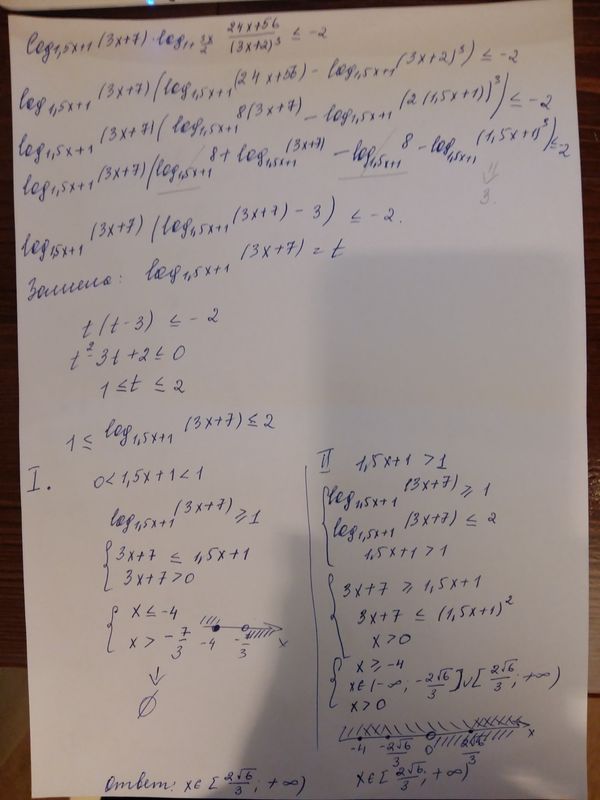 log₁,₅ₓ₊₁ (3x+7) · log₁₊ 3x/2 (24x+56)/(3x+2)³ ≤ -2
log₁,₅ₓ₊₁ (3x+7) (log₁,₅ₓ₊₁ (24x+56) - log₁,₅ₓ₊₁ (3x+2)³) ≤ -2
log₁,₅ₓ₊₁ (3x+7) (log₁,₅ₓ₊₁ 8(3x+7) - log₁,₅ₓ₊₁ (2(1,5x+1))³) ≤ -2
log₁,₅ₓ₊₁ (3x+7) (log₁,₅ₓ₊₁ 8 + log₁,₅ₓ₊₁ (3x+7) - log₁,₅ₓ₊₁ 8 - log₁,₅ₓ₊₁ (1,5x+1)³) ≤ -2
3.
log₁,₅ₓ₊₁ (3x+7) (log₁,₅ₓ₊₁ (3x+7) - 3) ≤ -2.
Замена: log₁,₅ₓ₊₁ (3x+7) = t
t(t-3) ≤ -2
t² - 3t + 2 ≤ 0
1 ≤ t ≤ 2
1 ≤ log₁,₅ₓ₊₁ (3x+7) ≤ 2
I. 0 < 1,5x+1 < 1
log₁,₅ₓ₊₁ (3x+7) ≥ 1
{ 3x+7 ≤ 1,5x+1
3x+7 > 0
{ x ≤ -4
x > -7/3
-4 -7/3 x
↓
∅
II 1,5x+1 > 1
{ log₁,₅ₓ₊₁ (3x+7) ≥ 1
log₁,₅ₓ₊₁ (3x+7) ≤ 2
1,5x+1 > 1
{ 3x+7 ≥ 1,5x+1
3x+7 ≤ (1,5x+1)²
x > 0
{ x ≥ -4
x ∈ (-∞; -2√6/3] ∪ [2√6/3; +∞)
x > 0
-4 -2√6/3 0 2√6/3 x
x ∈ [2√6/3; +∞)
Ответ: x ∈ [2√6/3; +∞)